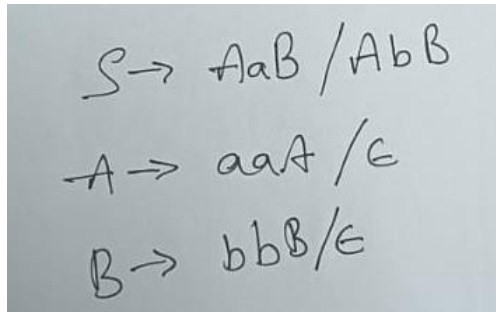 S → AaB / AbB
A → aaA / ϵ
B → bbB / ϵ